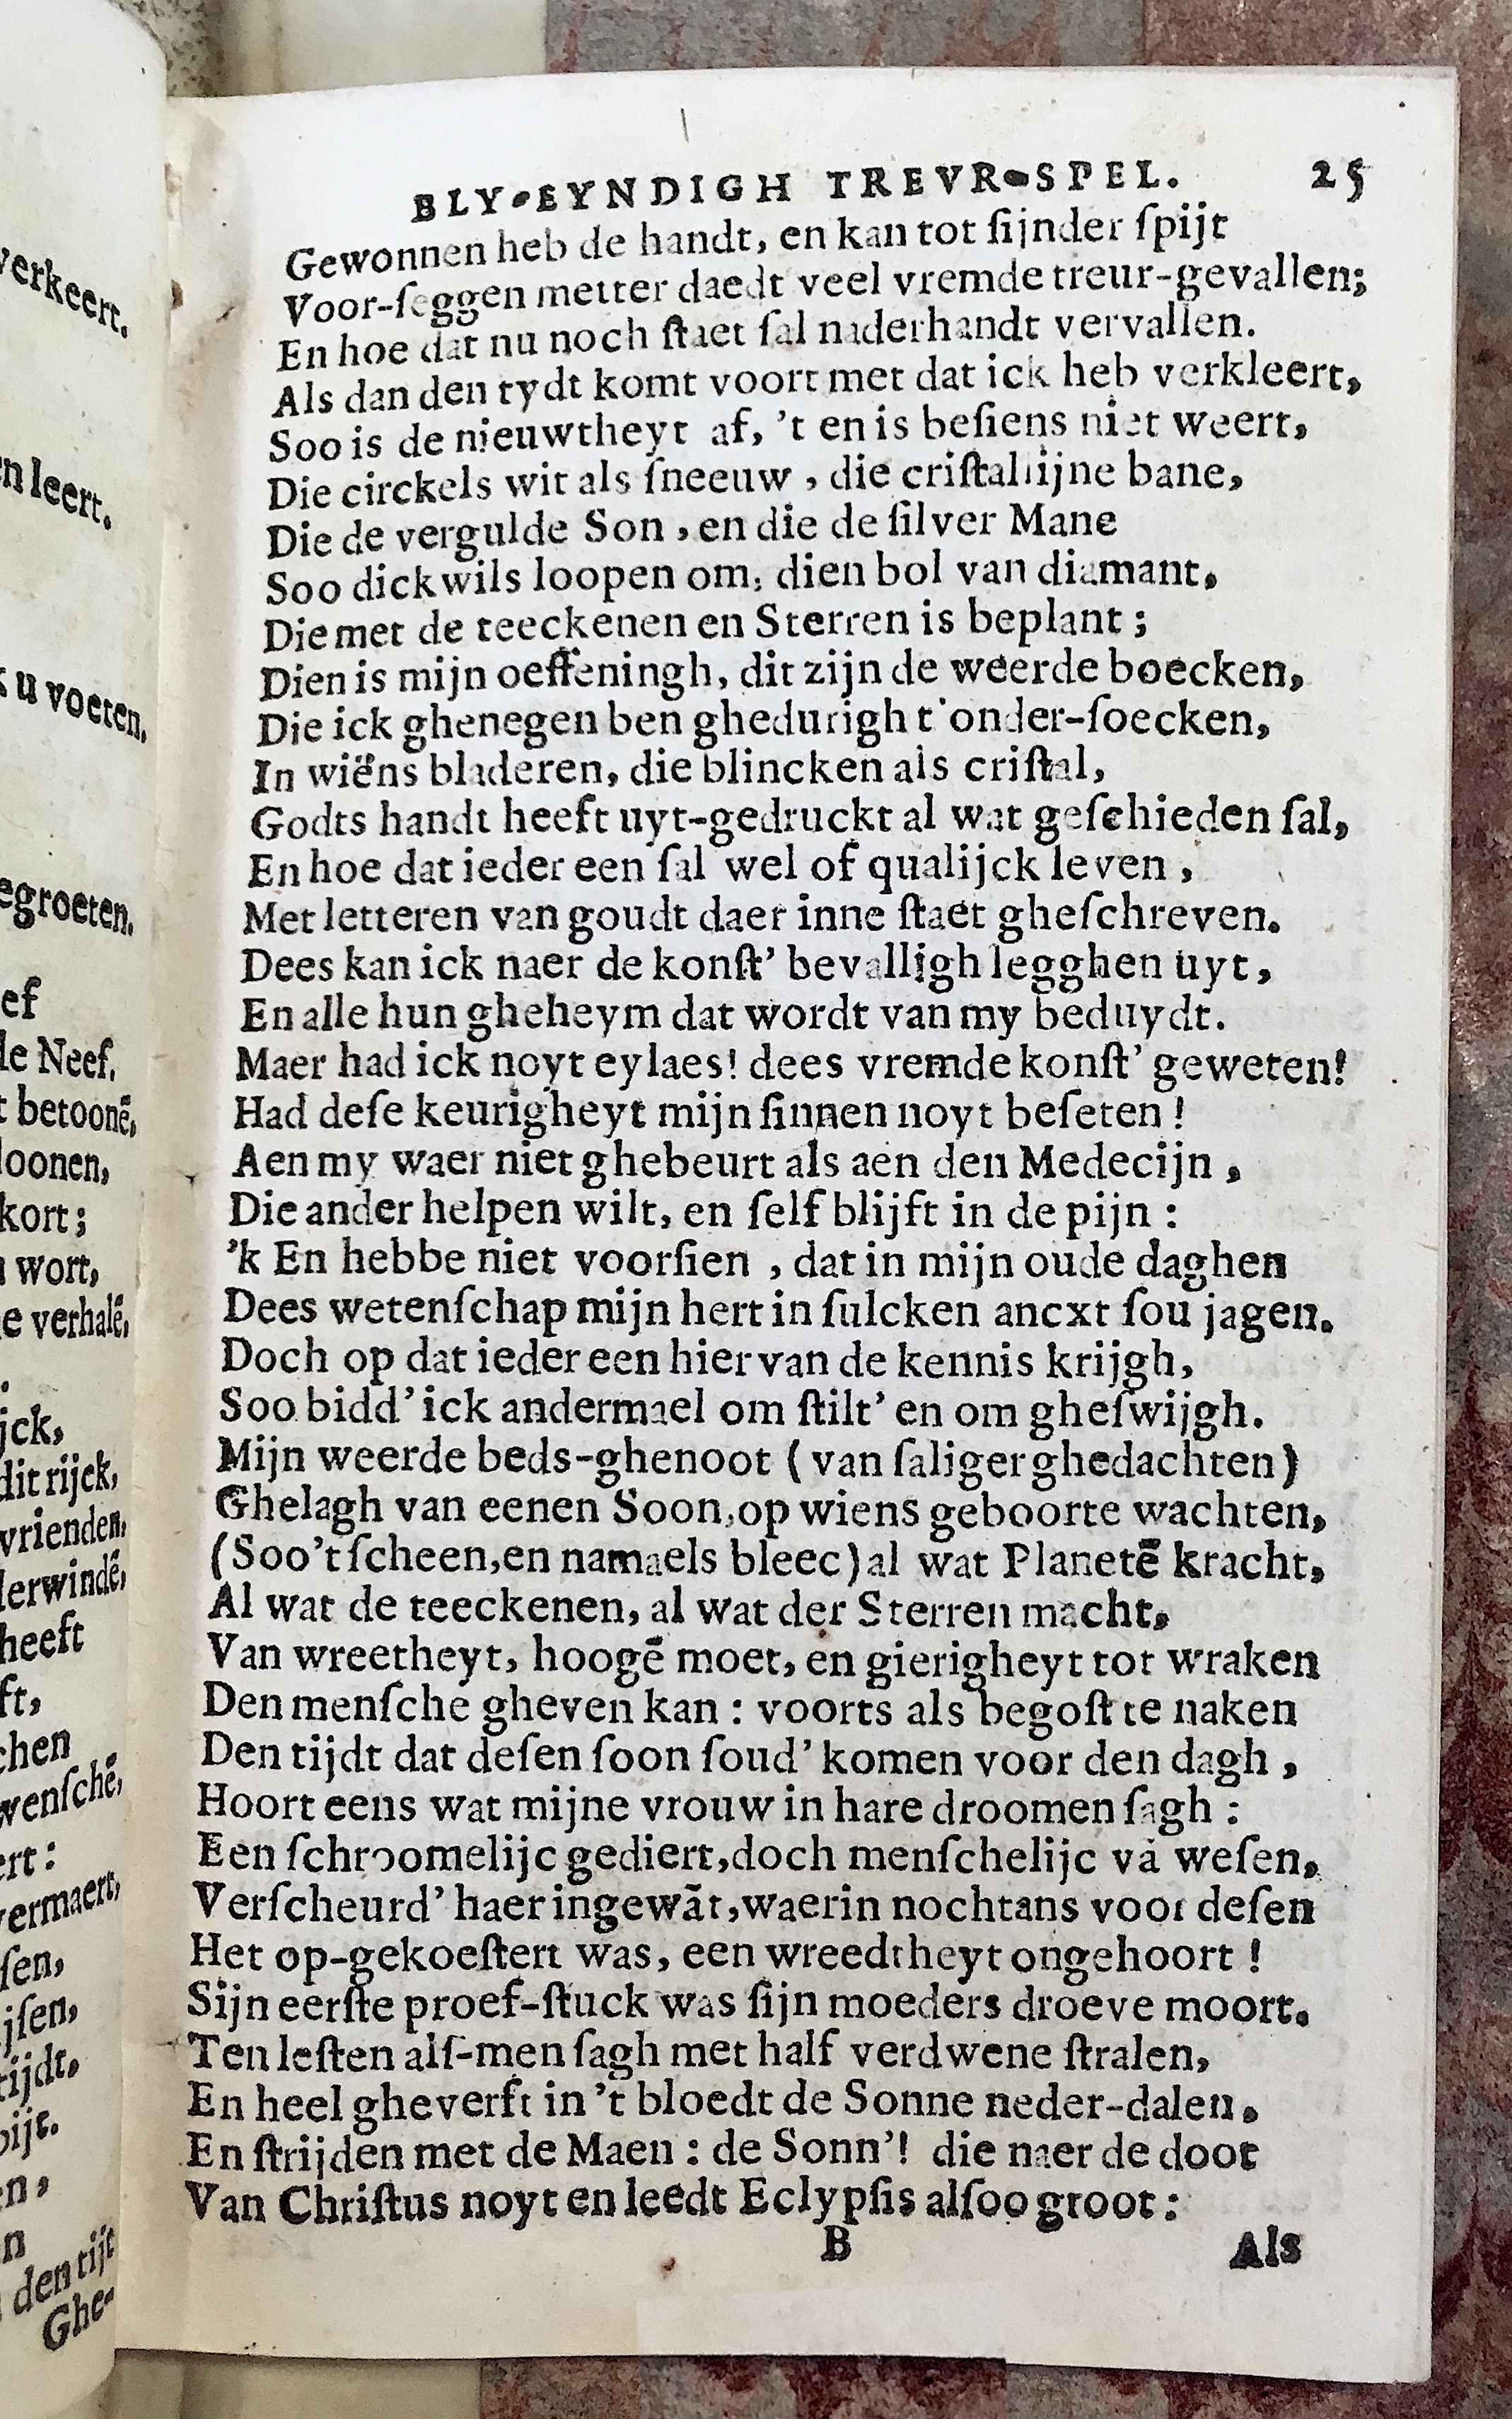 verkeert.
n leert.
k u voeten.
egroeten.
ef
de Neef.
t betoonē,
loonen,
kort;
n wort,
e verhalē,
.
jck,
dit rijck,
vrienden,
derwindē,
heeft
ft,
chen
wenſchē,
ert:
vermaert,
ſen,
jſen,
tijdt,
pijt.
n,
n
den tijt
Ghe-
BLY-EYNDIGH TREVR-SPEL. 25
Gewonnen heb de handt, en kan tot ſijnder ſpijt
Voor-ſeggen metter daedt veel vremde treur-gevallen;
En hoe dat nu noch ſtaet ſal naderhandt vervallen.
Als dan den tydt komt voort met dat ick heb verkleert,
Soo is de nieuwtheyt af, 't en is beſiens niet weert,
Die circkels wit als ſneeuw, die criſtallijne bane,
Die de vergulde Son, en die de ſilver Mane
Soo dickwils loopen om, dien bol van diamant,
Die met de teeckenen en Sterren is beplant;
Dien is mijn oeffeningh, dit zijn de weerde boecken,
Die ick ghenegen ben ghedurigh t'onder-ſoecken,
In wiëns bladeren, die blincken als criſtal,
Godts handt heeft uyt-gedruckt al wat geſchieden ſal,
En hoe dat ieder een ſal wel of qualijck leven,
Met letteren van goudt daer inne ſtaet gheſchreven.
Dees kan ick naer de konſt' bevalligh legghen uyt,
En alle hun gheheym dat wordt van my beduydt.
Maer had ick noyt eylaes! dees vremde konſt' geweten!
Had deſe keurigheyt mijn ſinnen noyt beſeten!
Aen my waer niet ghebeurt als aen den Medecijn,
Die ander helpen wilt, en ſelf blijft in de pijn:
'k En hebbe niet voorſien, dat in mijn oude daghen
Dees wetenſchap mijn hert in ſulcken ancxt ſou jagen.
Doch op dat ieder een hier van de kennis krijgh,
Soo bidd' ick andermael om ſtilt' en om gheſwijgh.
Mijn weerde beds-ghenoot (van ſaliger ghedachten)
Ghelagh van eenen Soon, op wiens geboorte wachten,
(Soo't ſcheen, en namaels bleec) al wat Planetē kracht,
Al wat de teeckenen, al wat der Sterren macht,
Van wreetheyt, hoogē moet, en gierigheyt tot wraken
Den menſche gheven kan: voorts als begoſt te naken
Den tijdt dat deſen ſoon ſoud' komen voor den dagh,
Hoort eens wat mijne vrouw in hare droomen ſagh:
Een ſchroomelijc gediert, doch menſchelijc vā weſen,
Verſcheurd' haer ingewāt, waerin nochtans voor deſen
Het op-gekoeſtert was, een wreedtheyt ongehoort!
Sijn eerſte proef-ſtuck was ſijn moeders droeve moort.
Ten leſten alſ-men ſagh met half verdwene ſtralen,
En heel gheverft in 't bloedt de Sonne neder-dalen,
En ſtrijden met de Maen: de Sonn'! die naer de doot
Van Chriſtus noyt en leedt Eclypſis alſoo groot:
B Als